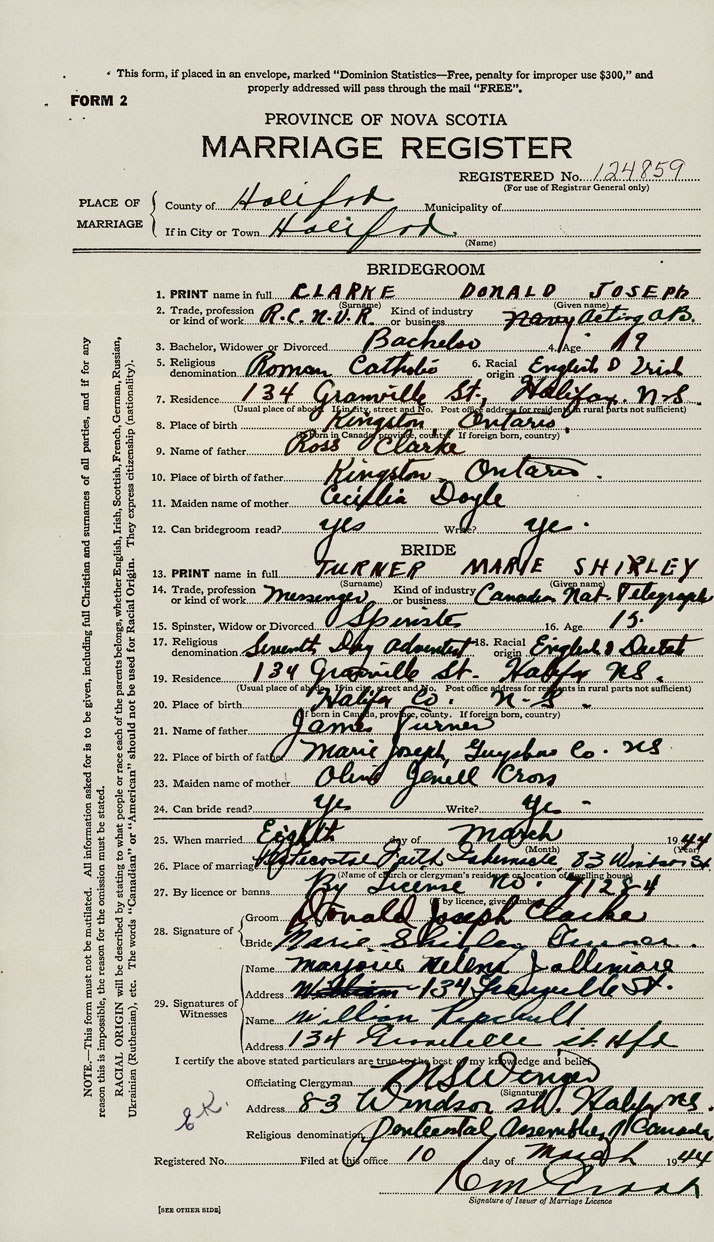 This form, if placed in an envelope, marked "Dominion Statistics—Free, penalty for improper use $300," and
properly addressed will pass through the mail "FREE".
FORM 2
PROVINCE OF NOVA SCOTIA
MARRIAGE REGISTER
REGISTERED No. 124859
(For use of Registrar General only)
PLACE OF MARRIAGE
County of Halifax Municipality of
If in City or Town Halifax
(Name)
BRIDEGROOM
1. PRINT name in full CLARKE DONALD JOSEPH
(Surname) (Given name)
2. Trade, profession or kind of work R.C.N.V.R. Kind of industry or business Navy Acting A.B.
3. Bachelor, Widower or Divorced Bachelor 4. Age 19
5. Religious denomination Roman Catholic 6. Racial origin English & Irish
7. Residence 134 Granville St., Halifax. N.S.
(Usual place of abode. If in city, street and No. Post office address for residents in rural parts not sufficient)
8. Place of birth Kingston Ontario.
(If born in Canada, province, county. If foreign born, country)
9. Name of father Ross Clarke
10. Place of birth of father Kingston Ontario.
11. Maiden name of mother Cecilia Doyle
12. Can bridegroom read? yes Write? yes.
BRIDE
13. PRINT name in full TURNER MARIE SHIRLEY
(Surname) (Given name)
14. Trade, profession or kind of work Messenger Kind of industry or business Canadian Nat. Telegraph
15. Spinster, Widow or Divorced Spinster 16. Age 15.
17. Religious denomination Seventh Day Adventist 18. Racial origin English & Dutch
19. Residence 134 Granville St. Halifax NS.
(Usual place of abode. If in city, street and No. Post office address for residents in rural parts not sufficient)
20. Place of birth Halifax Co. N-S.
(If born in Canada, province, county. If foreign born, country)
21. Name of father James Turner
22. Place of birth of father Marie Joseph, Guysboro Co. NS
23. Maiden name of mother Cross
24. Can bride read? Yes Write? Yes -
25. When married Eighth day of March 1944
(Month) (Year)
26. Place of marriage Pentecostal Faith Tabernacle, 83 Windsor St.
(Name of church or clergyman's residence or location of dwelling house)
27. By licence or banns By License No. 71284
(If by licence, give number)
28. Signature of
Groom Donald Joseph Clarke
Bride Marie Shirley Turner.
29. Signatures of Witnesses
Name Marjorie Helena Jollimore
Address 134 Granville St.
Name
Address 134 Granville st. Hfx
I certify the above stated particulars are true to the best of my knowledge and belief.
Officiating Clergyman
(Signature)
Address 83 Windsor St. Halifax NS.
Religious denomination Pentecostal Assemblies of Canada
Registered No. Filed at this office 10 day of March 1944
Signature of Issuer of Marriage Licence
[SEE OTHER SIDE]
NOTE.—This form must not be mutilated. All information asked for is to be given, including full Christian and surnames of all parties, and if for any
reason this is impossible, the reason for the omission must be stated.
RACIAL ORIGIN will be described by stating to what people or race each of the parents belongs, whether English, Irish, Scottish, French, German, Russian,
Ukrainian (Ruthenian), etc. The words "Canadian" or "American" should not be used for Racial Origin. They express citizenship (nationality).